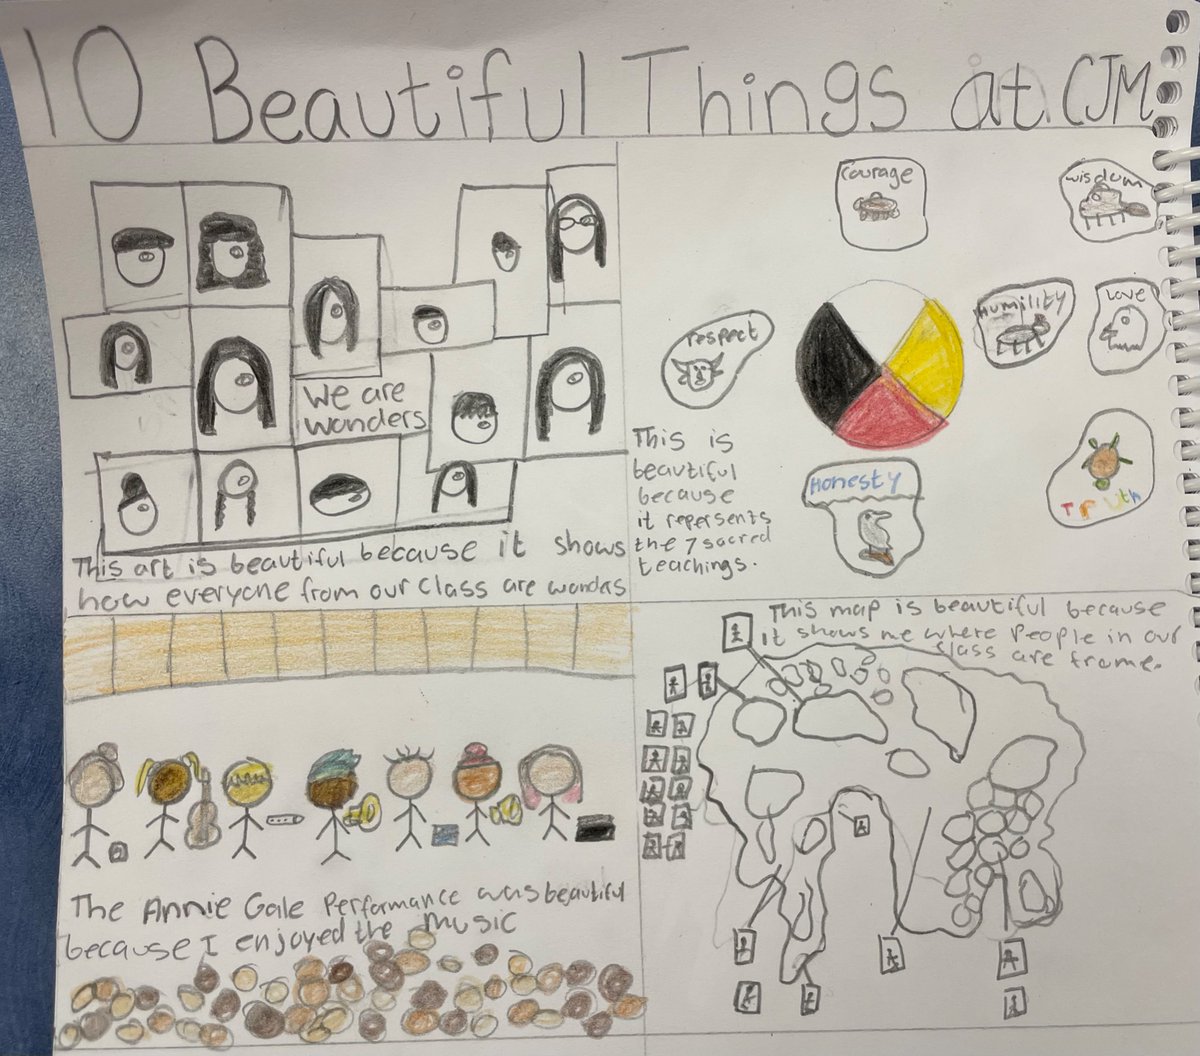 10 Beautiful Things at CJM
We are
wonders
This art is beautiful because it shows
how everyone from our class are wonders
courage
wisdom
respect
Humility
Love
Honesty
Truth
This is
beautiful
because
it repersents
the 7 sacred
teachings.
The Annie Gale Performance was beautiful
because I enjoyed the Music
This map is beautiful because
it shows me where People in our
class are frome.